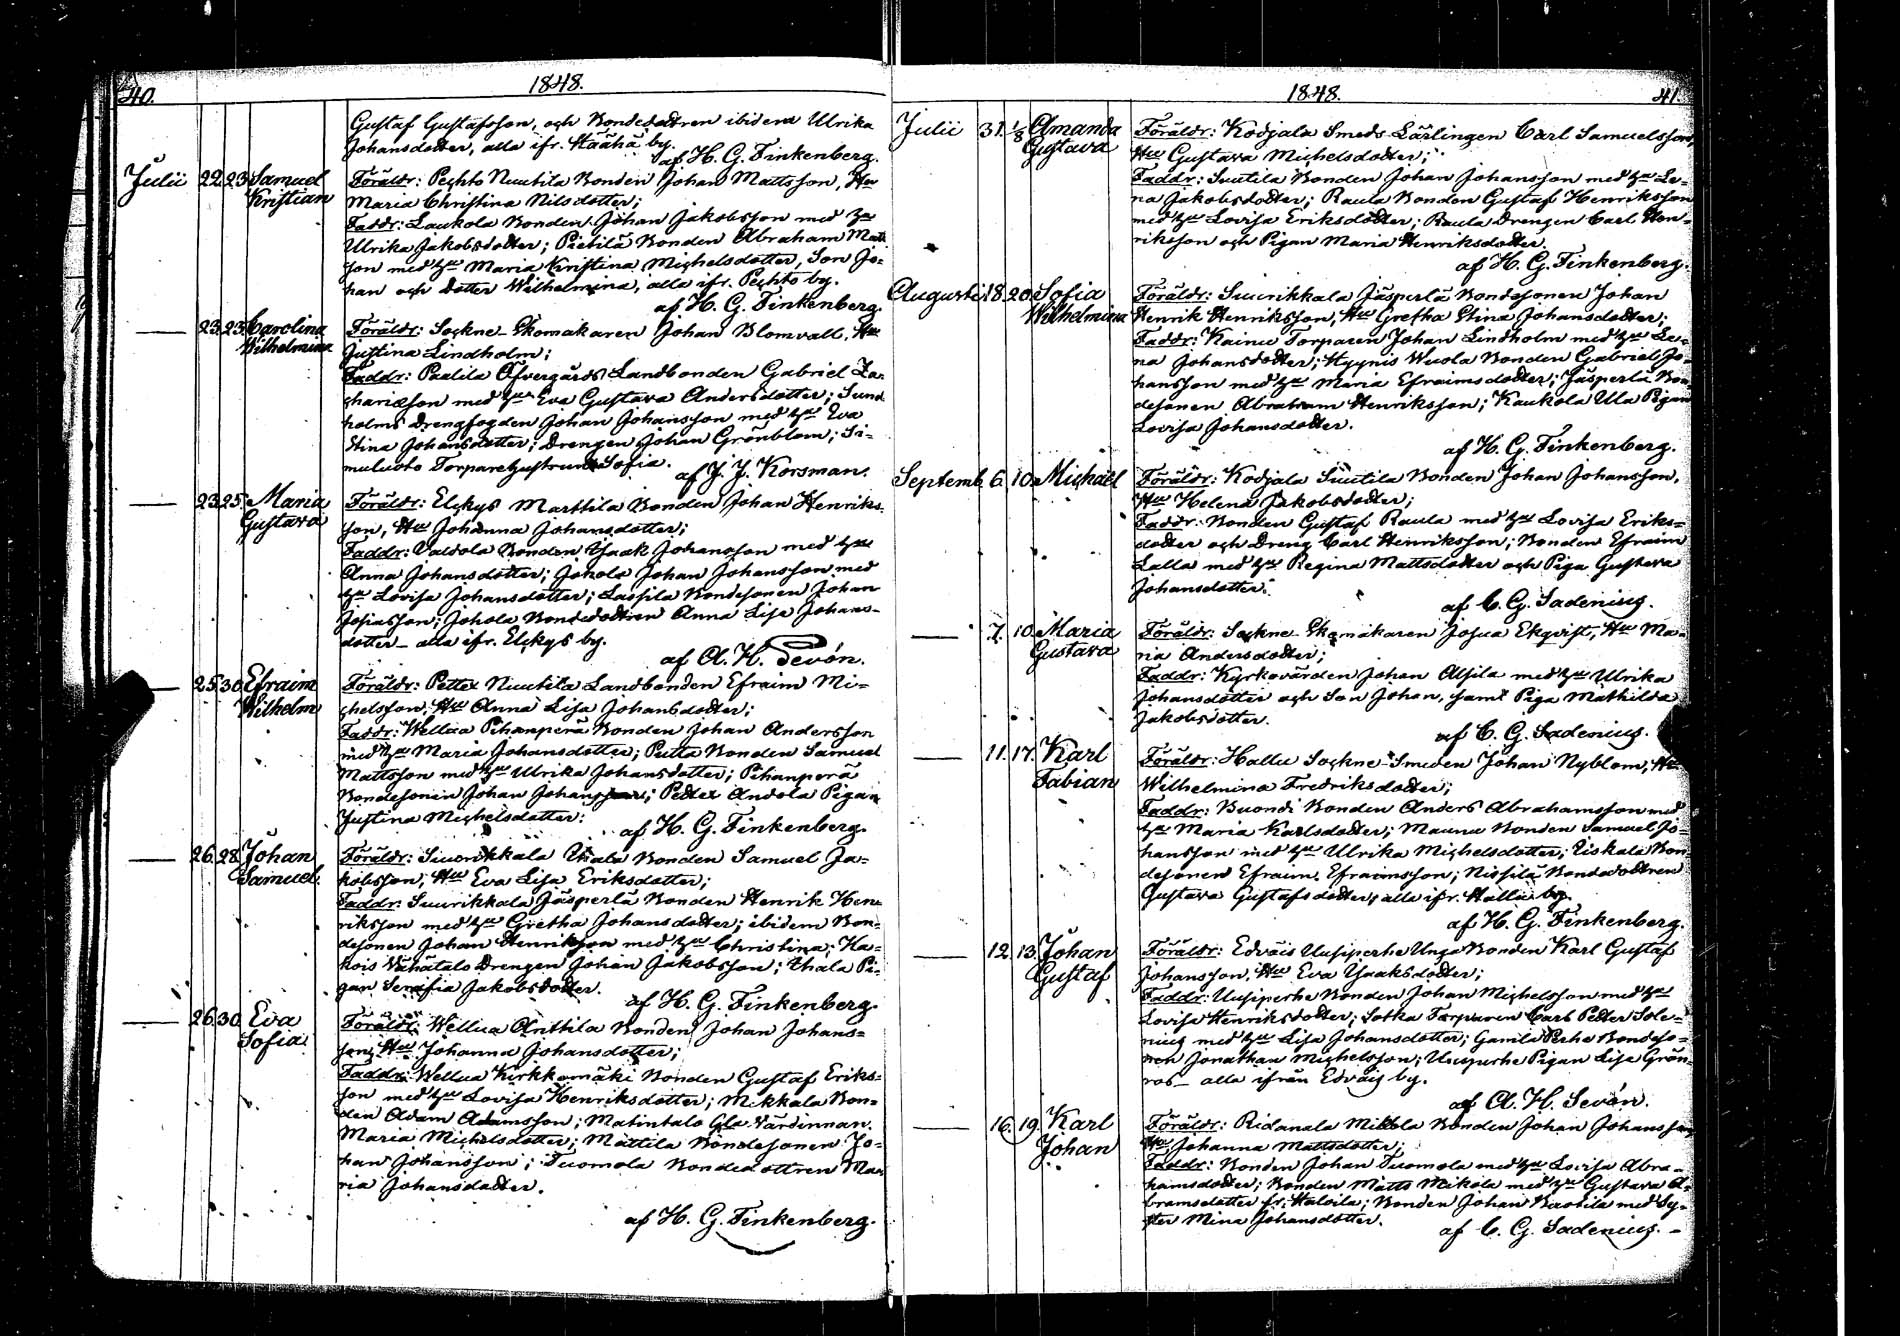 40.
1848.
Gustaf Gustafsson, och Bondedottren ibidem Ulrika
Johansdotter, alla ifr. Häähä by.
af H. G. Finkenberg.
Julii 22. 23. Samuel Kristian
Föräldr: Pechto Nuutila Bonden Johan Mattsson, Hu
Maria Christina Nilsdotter;
Faddr: Laukola Bonden Johan Jakobsson med hu
Ulrika Jakobsdotter; Pietilä Bonden Abraham Matt
son med hu Maria Kristina Michelsdotter, Son Jo-
han och dotter Wilhelmina, alla ifr. Pechto by.
af H. G. Finkenberg.
— 23. 23. Carolina Wilhelmina
Föräldr: Sockne Skomakaren Johan Blomvall, Hu
Justina Lindholm;
Faddr: Paalila Öfvergårds Landbonden Gabriel Za-
chariasson med hu Eva Gustava Andersdotter; Sund
holms Drengfogden Johan Johansson med hu Eva
Stina Johansdotter; Drengen Johan Grönblom; Si-
muluoto Torparehustrun Sofia.
af J. J. Korsman.
— 23. 25. Maria Gustava
Föräldr: Elckys Marttila Bonden Johan Henriks-
son, Hu Johanna Johansdotter;
Faddr: Valdola Bonden Isaak Johansson med hu
Anna Johansdotter; Johola Johan Johansson med
hu Lovisa Johansdotter; Lassila Bondesonen Johan
Josiasson; Johola Bondedottren Anna Lisa Johans-
dotter – alla ifr. Elckys by.
af A. H. Sevón.
— 25. 30. Efraim Wilhelm
Föräldr: Petter Nuutila Landbonden Efraim Mi-
chelsson, Hu Anna Lisa Johansdotter;
Faddr: Wellua Pihanperä Bonden Johan Andersson
med hu Maria Johansdotter; Putta Bonden Samuel
Mattsson med hu Ulrika Johansdotter; Pihanperä
Bondesonen Johan Johansson; Petter Andola Pigan
Justina Michelsdotter.
af H. G. Finkenberg.
— 26. 28. Johan Samuel.
Föräldr: Suurikkala Uhala Bonden Samuel Ja-
kobsson, Hu Eva Lisa Eriksdotter;
Faddr: Suurikkala Jäsperlä Bonden Henrik Hen-
riksson med hu Gretha Johansdotter; ibidem Bon-
desonen Johan Henriksson med hu Christina; Ha-
kois Vähätalo Drengen Johan Jakobsson; Uhala Pi-
gan Serafia Jakobsdotter.
af H. G. Finkenberg.
— 26. 30. Eva Sofia
Föräldr: Wellua Anttila Bonden Johan Johans-
son, Hu Johanna Johansdotter;
Faddr: Wellua Kirkkomäki Bonden Gustaf Eriks-
son med hu Lovisa Henriksdotter; Mikkala Bon-
den Adam Adamsson; Matintalo Gla Värdinnan
Maria Michelsdotter; Mattila Bondesonen Jo-
han Johansson; Tuomola Bondedottren Ma-
ria Johansdotter.
af H. G. Finkenberg.
1848.
41.
Julii 31. 1/8 Amanda Gustava
Föräldr: Kodjala Smeds Lärlingen Carl Samuelsson,
Hu Gustava Michelsdotter;
Faddr: Suutila Bonden Johan Johansson med hu Le-
na Jakobsdotter; Raula Bonden Gustaf Henriksson
med hu Lovisa Eriksdotter; Raula Drengen Carl Hen-
riksson och Pigan Maria Henriksdotter.
af H. G. Finkenberg.
Augusti 18. 20. Sofia Wilhelmina
Föräldr: Suurikkala Jäsperlä Bondesonen Johan
Henrik Henriksson, Hu Gretha Stina Johansdotter;
Faddr: Kainu Torparen Johan Lindholm med hu Le-
na Johansdotter; Hypnis Wuola Bonden Gabriel Jo-
hansson med hu Maria Efraimsdotter; Jäsperlä Bon-
desonen Abraham Henriksson; Kaukola Ula Pigan
Lovisa Johansdotter.
af H. G. Finkenberg.
Septemb. 6. 10. Michaël
Föräldr: Kodjala Suutila Bonden Johan Johansson,
Hu Helena Jakobsdotter;
Faddr: Bonden Gustaf Raula med hu Lovisa Eriks-
dotter och Dreng Carl Henriksson; Bonden Efraim
Lalla med hu Regina Mattsdotter och Piga Gustava
Johansdotter.
af C. G. Sadenius.
— 7. 10. Maria Gustava
Föräldr: Sockne Skomakaren Josua Ekqvist, Hu Ma-
ria Andersdotter;
Faddr: Kyrkovärden Johan Alsila med hu Ulrika
Johansdotter och Son Johan, samt Piga Mathilda
Jakobsdotter.
af C. G. Sadenius.
— 11. 17. Karl Fabian
Föräldr: Hallu Sockne Smeden Johan Nyblom, Hu
Wilhelmina Fredriksdotter;
Faddr: Buondi Bonden Anders Abrahamsson med
hu Maria Karlsdotter; Maunu Bonden Samuel Jo-
hansson med hu Ulrika Michelsdotter; Eiskala Bon-
desonen Efraim Efraimsson; Nissilä Bondedottren
Gustava Gustafsdotter, alla ifr. Hallu by.
af H. G. Finkenberg.
— 12. 13. Johan Gustaf
Föräldr: Edväis Uusiperhe Unga Bonden Karl Gustaf
Johansson, Hu Eva Isaksdotter;
Faddr: Uusiperhe Bonden Johan Michelsson med hu
Lovisa Henriksdotter; Sotka Torparen Carl Petter Sole-
nius med hu Lisa Johansdotter; Gamla Perhe Bondeso-
nen Jonathan Michelsson; Uusiperhe Pigan Lisa Grön-
ros – alla ifrån Edväis by.
af A. H. Sevón.
— 16. 19. Karl Johan
Föräldr: Ridanala Mikola Bonden Johan Johansson,
Hu Johanna Mattsdotter;
Faddr: Bonden Johan Tuomola med hu Lovisa Abra-
hamsdotter; Bonden Matts Mikola med hu Gustava A-
bramsdotter fr. Haloila; Bonden Johan Baskila med Sy-
ster Mina Johansdotter.
af C. G. Sadenius.